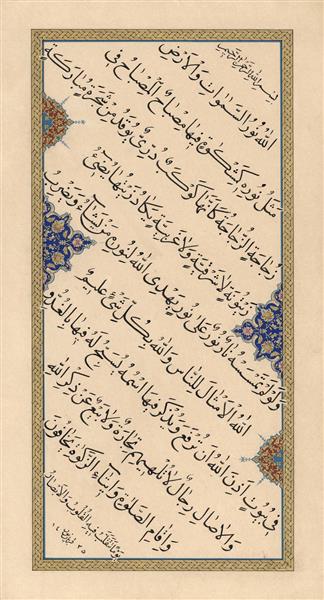 بِسْمِ اللهِ الرَّحْمٰنِ الرَّحِيمِ
اَللهُ نُورُ السَّمٰوَاتِ وَالْاَرْضِ
مَثَلُ نُورِهِ كَمِشْكٰوةٍ فِيهَا مِصْبَاحٌ اَلْمِصْبَاحُ فِى
زُجَاجَةٍ اَلزُّجَاجَةُ كَاَنَّهَا كَوْكَبٌ دُرِّىٌّ يُوقَدُ مِنْ شَجَرَةٍ مُبَارَكَةٍ
زَيْتُونَةٍ لَا شَرْقِيَّةٍ وَلَا غَرْبِيَّةٍ يَكَادُ زَيْتُهَا يُضِىءُ
وَلَوْ لَمْ تَمْسَسْهُ نَارٌ نُورٌ عَلٰى نُورٍ يَهْدِى اللهُ لِنُورِهِ مَنْ يَشَاءُ وَيَضْرِبُ
اللهُ الْاَمْثَالَ لِلنَّاسِ وَاللهُ بِكُلِّ شَىْءٍ عَلِيمٌ
فِى بُيُوتٍ اَذِنَ اللهُ اَنْ تُرْفَعَ وَيُذْكَرَ فِيهَا اسْمُهُ يُسَبِّحُ لَهُ فِيهَا بِالْغُدُوِّ
وَالْاٰصَالِ رِجَالٌ لَا تُلْهِيهِمْ تِجَارَةٌ وَلَا بَيْعٌ عَنْ ذِكْرِ اللهِ
وَاِقَامِ الصَّلٰوةِ وَاِيتَاءِ الزَّكٰوةِ يَخَافُونَ
يَوْمًا تَتَقَلَّبُ فِيهِ الْقُلُوبُ وَالْاَبْصَارُ